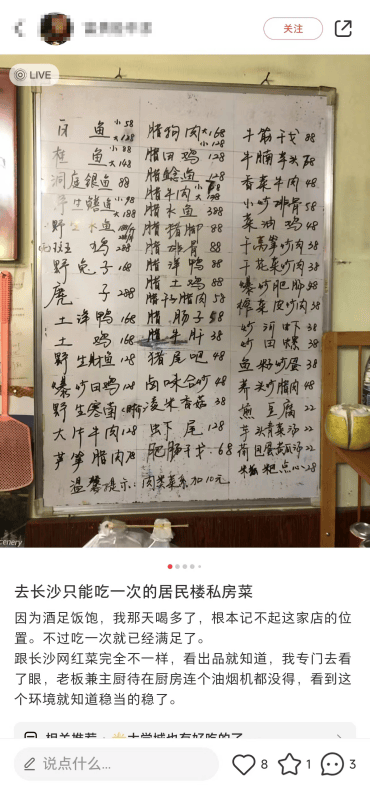 关注
LIVE
鱼 小58 大128
鱼 小88 大148
洞庭银鱼 88
野生鳝鱼 小98 大188
野生水鱼
鸡 288
野兔子 168
鹿子 288
土洋鸭 168
土鸡 168
野生财鱼 128
爆炒田鸡 128
野生寒菌
大片牛肉 128
芦笋腊肉 78
腊狗肉 大168 小128
腊田鸡 128
腊鲶鱼 128
腊牛肉
腊水鱼 388
腊猪脚 88
腊排骨 88
腊洋鸭 88
腊土鸡 88
腊干腊肉 58
腊肠子 58
腊牛肝 38
猪尾吧 48
卤味合炒 48
凌米香菇 38
虾尾 128
肥肠干戈 68
牛筋干戈 88
牛腩芋头 78
香菜牛肉 48
小炒排骨 58
菜油鸡 48
干莴笋炒肉 38
干花菜炒肉 38
爆炒肥肠 48
擦菜皮炒肉 38
炒河虾 38
炒田螺 38
鱼籽炒蛋 38
荞头炒腊肉 48
煎豆腐 22
芋头青菜汤 22
荷包蛋黄瓜汤 22
粑点心 28
温馨提示：肉类菜余加10元
cenery
去长沙只能吃一次的居民楼私房菜
因为酒足饭饱，我那天喝多了，根本记不起这家店的位
置。不过吃一次就已经满足了。
跟长沙网红菜完全不一样，看出品就知道，我专门去看
了眼，老板兼主厨待在厨房连个油烟机都没得，看到这
个环境就知道稳当的稳了。
相关推荐：大学城也有好吃的了
说点什么...
8
1
3